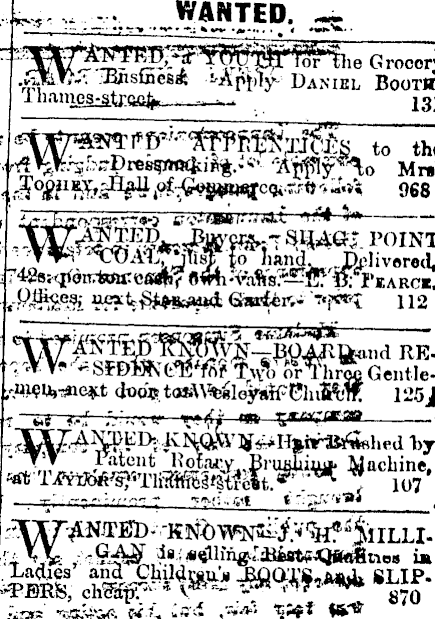 WANTED.
WANTED, a YOUTH for the Grocery
Business. Apply DANIEL BOOTH
Thames-street. 13
WANTED APPRENTICES to the
Dressmaking. Apply to Mrs
TOOHEY, Hall of Commerce. 968
WANTED Buyers SHAG POINT
COAL, just to hand. Delivered,
42s. per ton cash, own vans.—L. B. PEARCE,
Offices, next Star and Garter. 112
WANTED KNOWN—BOARD and RE-
SIDENCE for Two or Three Gentle-
men, next door to Wesleyan Church. 125
WANTED KNOWN—Hair Brushed by
Patent Rotary Brushing Machine,
at TAYLOR'S, Thames-street. 107
WANTED KNOWN—J. H. MILLI-
GAN is selling Best Qualities in
Ladies' and Children's BOOTS and SLIP-
PERS, cheap. 870